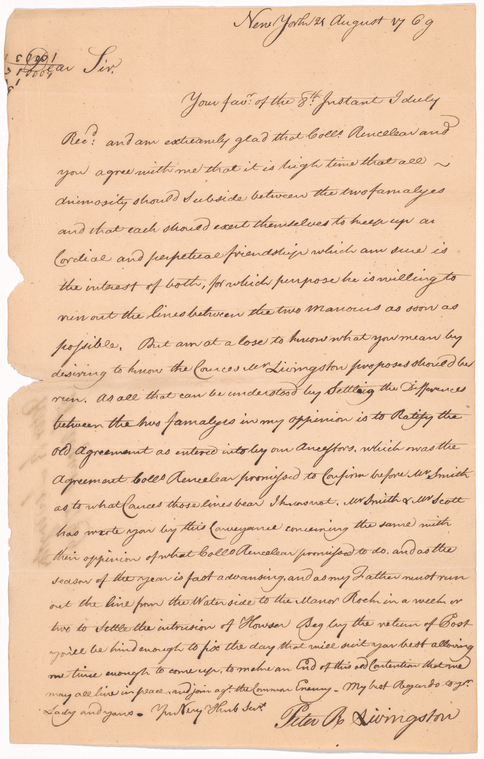 New York 21 August 1769
Dear Sir.
Your favr. of the 8th. Instant I duly
Recd. and am extreamly glad that Collo. Rencelear and
you agree with me that it is high time that all
animosity should Subside between the two famalyes
and that each should exert themselves to keep up a
Cordial and perpetual friendship which am sure is
the interest of both, for which purpose he is willing to
run out the lines between the two Manours as soon as
possible. But am at a lose to know what you mean by
desiring to know the Cources Mr. Livingston proposes should be
run. As all that can be understood by Settling the Differences
between the two famalyes in my oppinion is to Ratify the
old Agreement as entered into by our Ancestors, which was the
Agreement Collo. Rencelear promissed to Confirm before Mr. Smith
as to what Cources those lines bear I know not. Mr. Smith & Mr. Scott
has wrote you by this Conveyance concerning the same with
their oppinion of what Collo. Rencelear promissed to do. and as the
season of the year is fast advansing, and as my Father must run
out the line from the Water side to the Manor Rock in a week or
two to Settle the intrusion of Howser Beg by the return of Post
you'll be kind enough to fix the day that will suit you best allowing
me time enough to come up. to make an End of this old Contention that we
may all live in peace and join agst. the Common Enemy - My best Regards to yr.
Lady and yours - Your Very Humb Servt.
Peter R Livingston